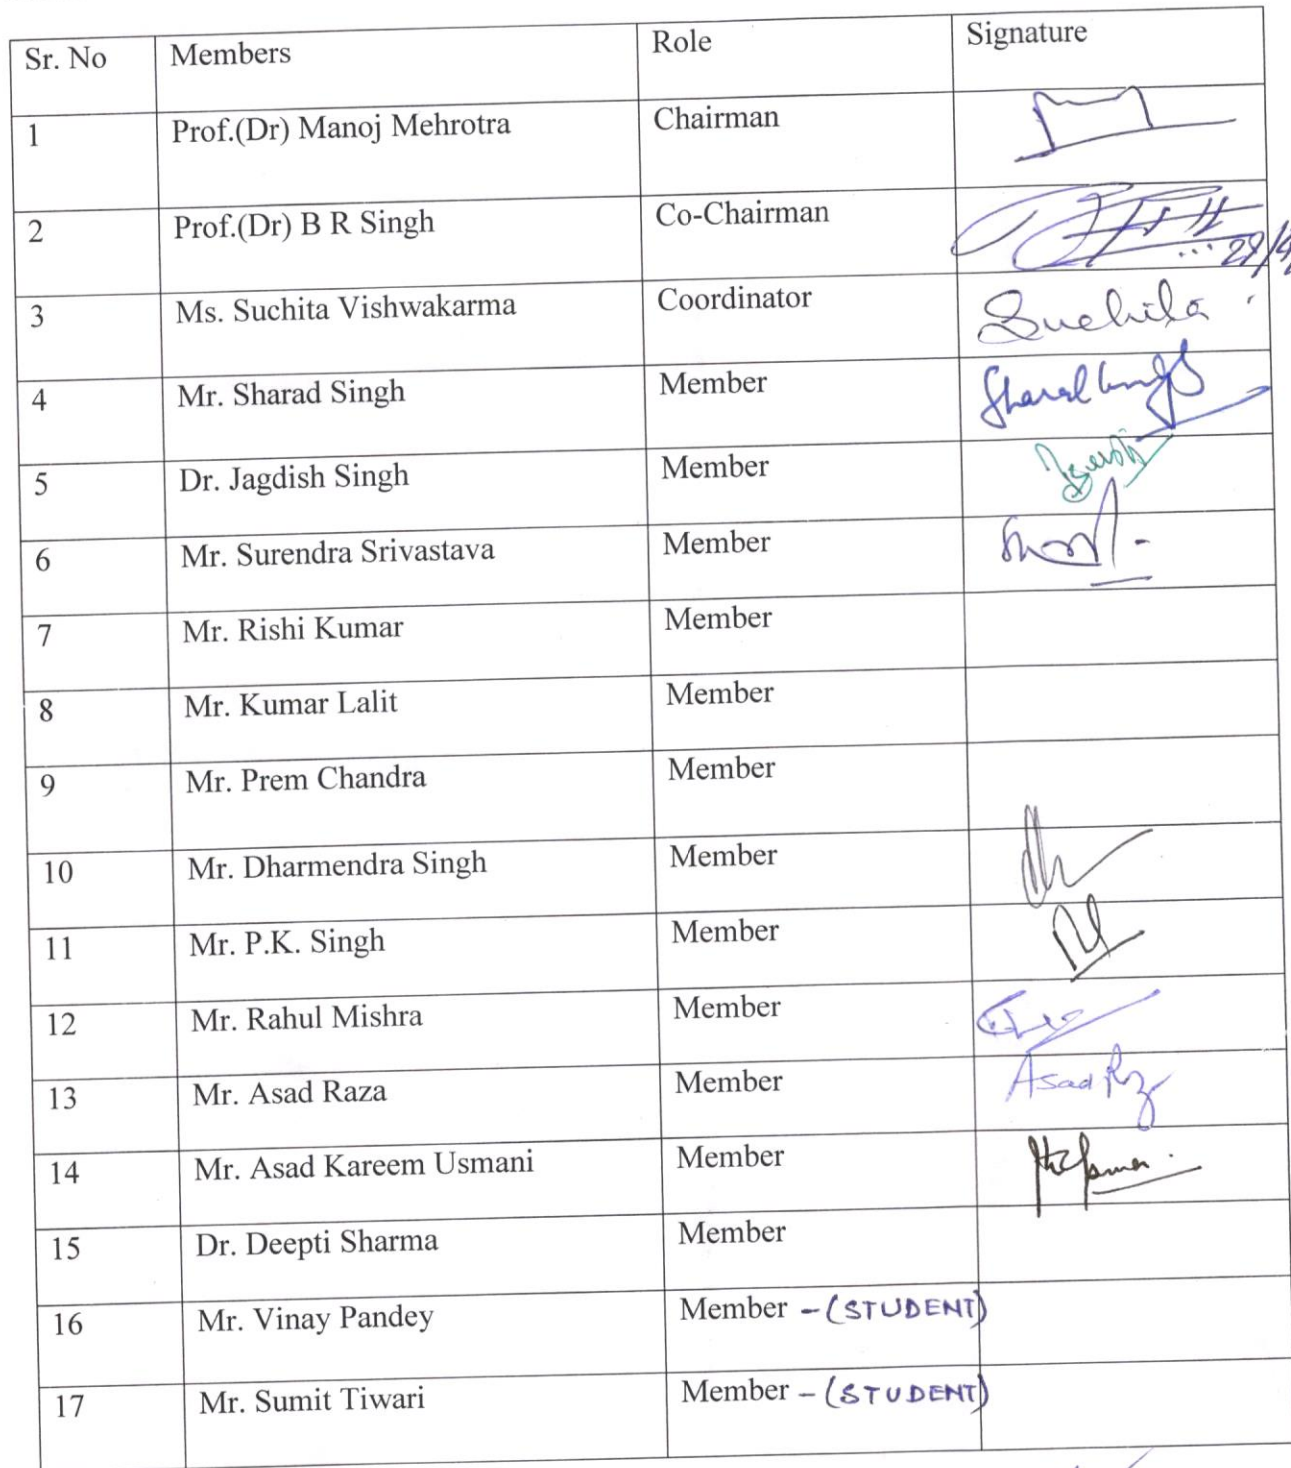 Sr. No Members Role Signature
1 Prof.(Dr) Manoj Mehrotra Chairman
2 Prof.(Dr) B R Singh Co-Chairman
3 Ms. Suchita Vishwakarma Coordinator Suchita
4 Mr. Sharad Singh Member
5 Dr. Jagdish Singh Member
6 Mr. Surendra Srivastava Member
7 Mr. Rishi Kumar Member
8 Mr. Kumar Lalit Member
9 Mr. Prem Chandra Member
10 Mr. Dharmendra Singh Member
11 Mr. P.K. Singh Member
12 Mr. Rahul Mishra Member
13 Mr. Asad Raza Member Asad
14 Mr. Asad Kareem Usmani Member
15 Dr. Deepti Sharma Member
16 Mr. Vinay Pandey Member - (STUDENT)
17 Mr. Sumit Tiwari Member - (STUDENT)